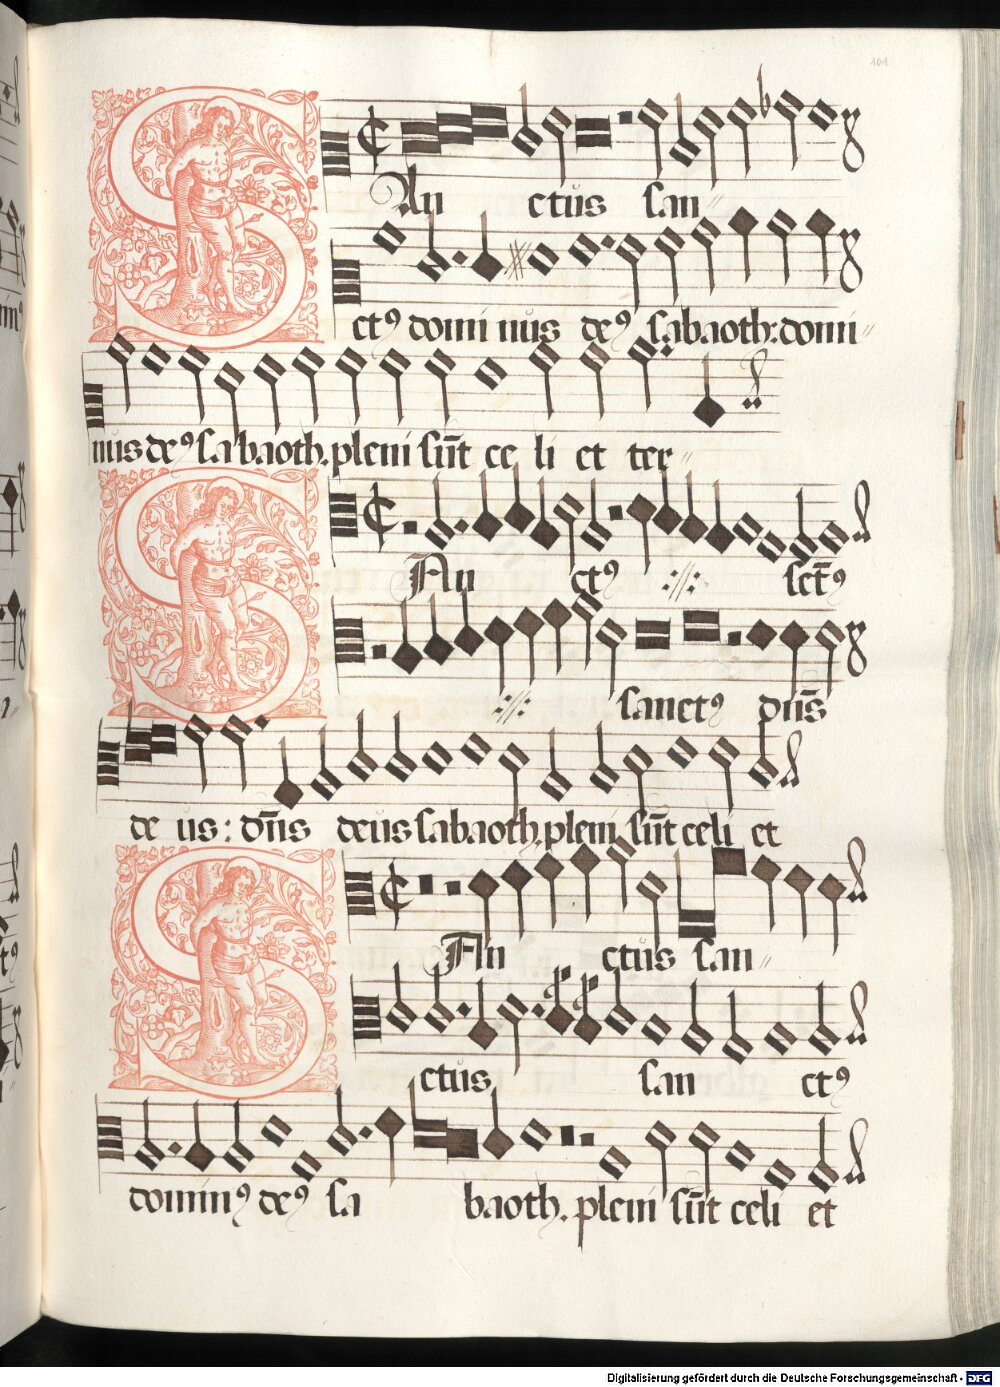 101
SAn ctus san
ctꝰ domi nus deꝰ sabaoth: domi
nus deꝰ sabaoth. pleni sūt ce li et ter
SAn ctꝰ ://: sct̄ꝰ
://: sanctꝰ dn̄s
de us: dn̄s deus sabaoth. pleni sūt celi et
SAn ctus san
ctus san ctꝰ
dominꝰ deꝰ sa baoth. pleni sūt celi et
Digitalisierung gefördert durch die Deutsche Forschungsgemeinschaft - DFG